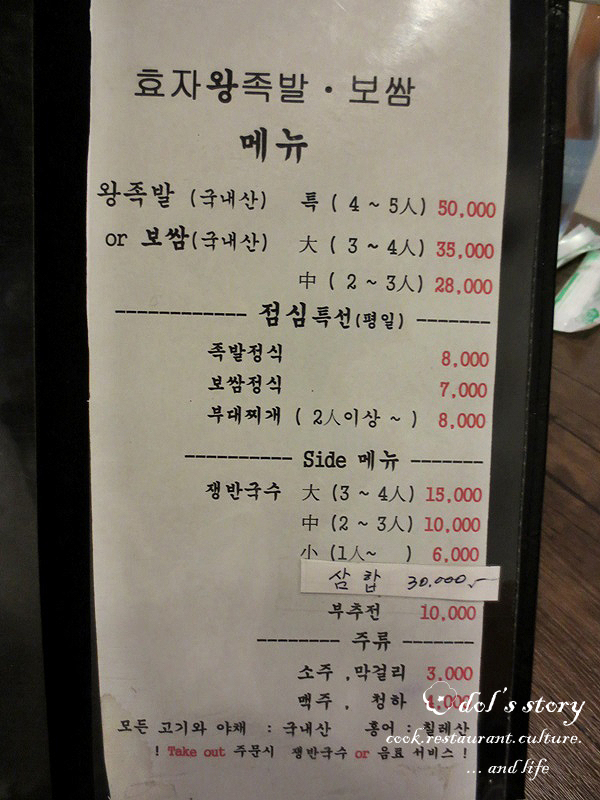 효자왕족발 · 보쌈
메뉴
왕족발 (국내산) 특 ( 4 ~ 5人) 50,000
or 보쌈(국내산) 大 ( 3 ~ 4人) 35,000
中 ( 2 ~ 3人) 28,000
------------ 점심특선(평일) -------
족발정식 8,000
보쌈정식 7,000
부대찌개 ( 2人이상 ~ ) 8,000
---------- Side 메뉴 -------
쟁반국수 大 (3 ~ 4人) 15,000
中 (2 ~ 3人) 10,000
小 (1人~ ) 6,000
삼합 30.000.-
부추전 10,000
-------- 주류 -------
소주 ,막걸리 3,000
맥주 , 청하 4,000
모든 고기와 야채 : 국내산 홍어 : 칠레산
! Take out 주문시 쟁반국수 or 음료 서비스 !
dol's story
cook.restaurant.culture.
... and life